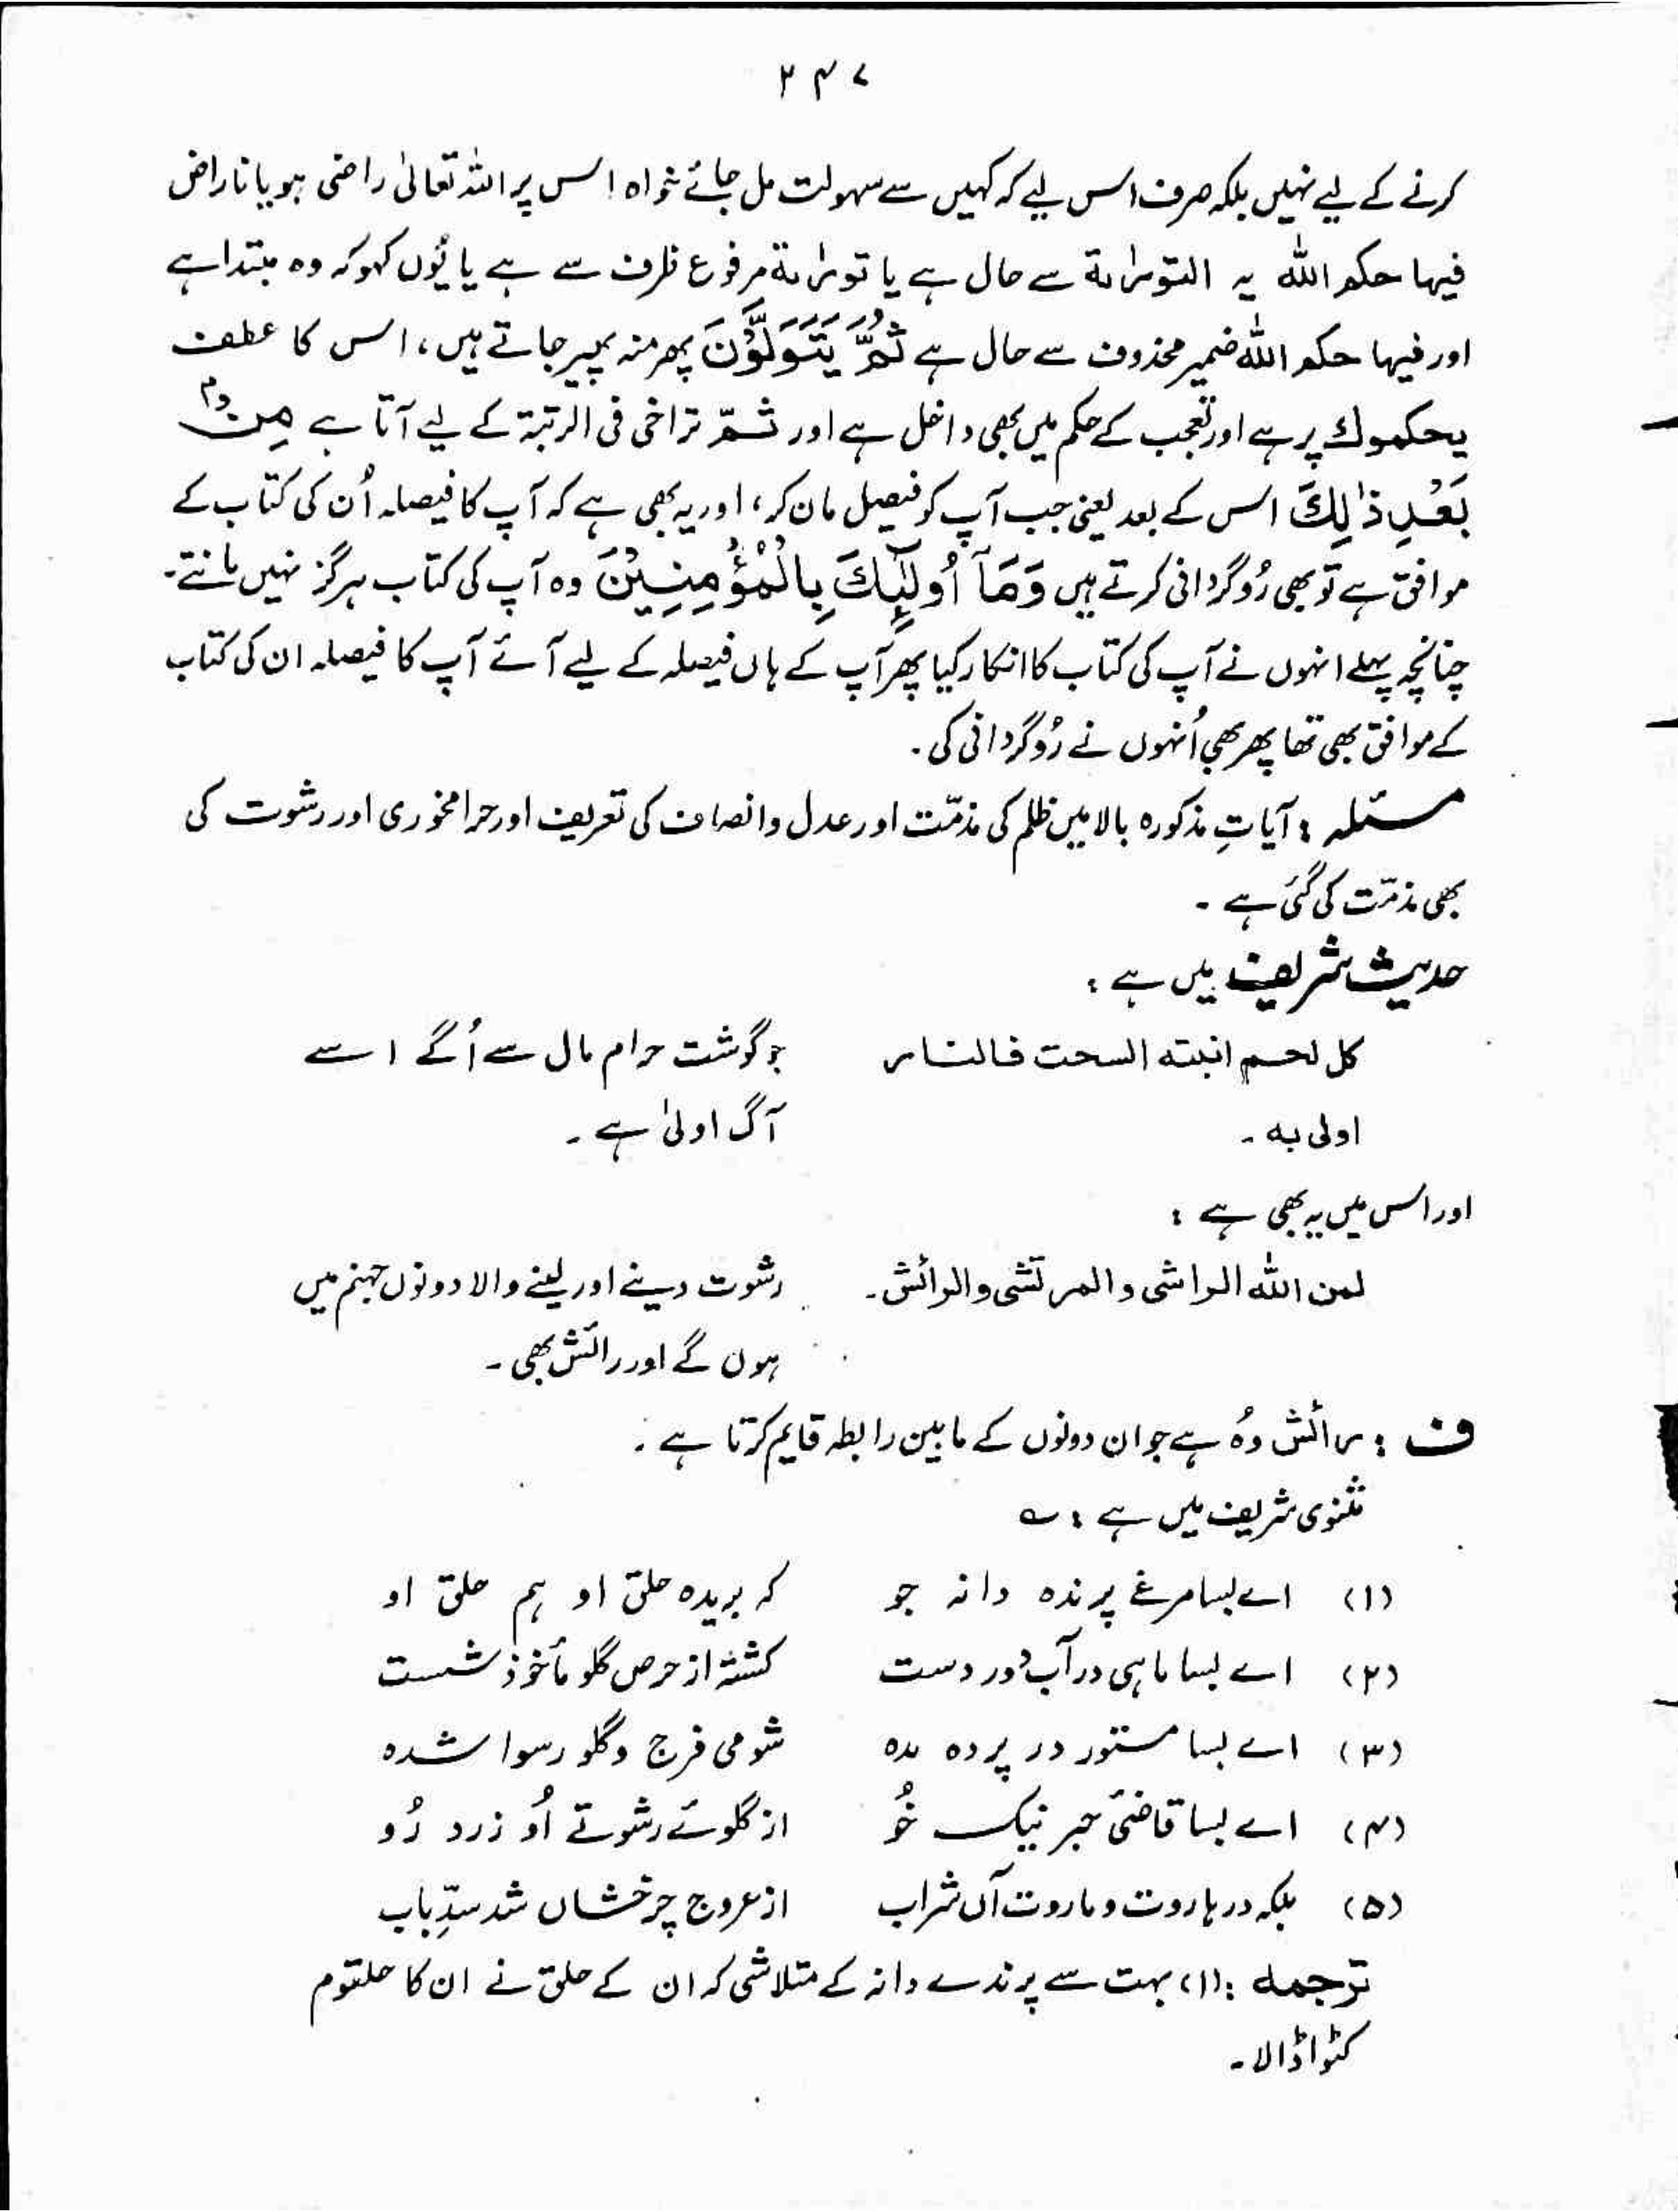 ۲۴۷
کرنے کے لیے نہیں بلکہ صرف اس لیے کہ کہیں سے سہولت مل جائے خواہ اس پر اللہ تعالیٰ راضی ہو یا ناراض
فیہا حکم اللہ یہ التوراۃ سے حال ہے یا توراۃ مرفوع ظرف سے ہے یا یُوں کہو کہ وہ مبتدا ہے
اور فیہا حکم اللہ ضمیر محذوف سے حال ہے ثُمَّ يَتَوَلَّوْنَ پھر منہ پھیر جاتے ہیں، اس کا عطف
یحکموك پر ہے اور تعجب کے حکم میں بھی داخل ہے اور ثمّ تراخی فی الرتبۃ کے لیے آتا ہے مِنْۢ
بَعْدِ ذٰلِكَ اس کے بعد یعنی جب آپ کو فیصل مان کر، اور یہ بھی ہے کہ آپ کا فیصلہ اُن کی کتاب کے
موافق ہے تو بھی رُوگردانی کرتے ہیں وَمَآ اُولٰٓئِكَ بِالْمُؤْمِنِيْنَ وہ آپ کی کتاب ہرگز نہیں مانتے۔
چنانچہ پہلے انہوں نے آپ کی کتاب کا انکار کیا پھر آپ کے ہاں فیصلہ کے لیے آئے آپ کا فیصلہ ان کی کتاب
کے موافق بھی تھا پھر بھی اُنہوں نے رُوگردانی کی۔
مسئلہ : آیاتِ مذکورہ بالا میں ظلم کی مذمّت اور عدل وانصاف کی تعریف اور حرامخوری اور رشوت کی
بھی مذمّت کی گئی ہے۔
حدیث شریف میں ہے :
کل لحم انبتہ السحت فالنار جو گوشت حرام مال سے اُگے اسے
اولی بہ۔ آگ اولیٰ ہے۔
اور اس میں یہ بھی ہے :
لعن اللہ الراشی والمرتشی والرائش۔ رشوت دینے اور لینے والا دونوں جہنم میں
ہوں گے اور رائش بھی۔
ف : رائش وُہ ہے جو ان دونوں کے مابین رابطہ قایم کرتا ہے۔
مثنوی شریف میں ہے : ؎
(۱) اے بسا مرغ پرندہ دانہ جو کہ بریدہ حلق او ہم حلق او
(۲) اے بسا ماہی در آب دُور دست کشتہ از حرص گلو مأخوذ شست
(۳) اے بسا مستور در پردہ بدہ شومی فرج و گلو رسوا شدہ
(۴) اے بسا قاضئ حبر نیک خُو از گلوئے رشوتے اُو زرد رُو
(۵) بلکہ در ہاروت و ماروت آں شراب از عروج چرخشاں شد سدِّ باب
ترجمہ : (۱) بہت سے پرندے دانہ کے متلاشی کہ ان کے حلق نے ان کا حلقوم
کٹوا ڈالا۔